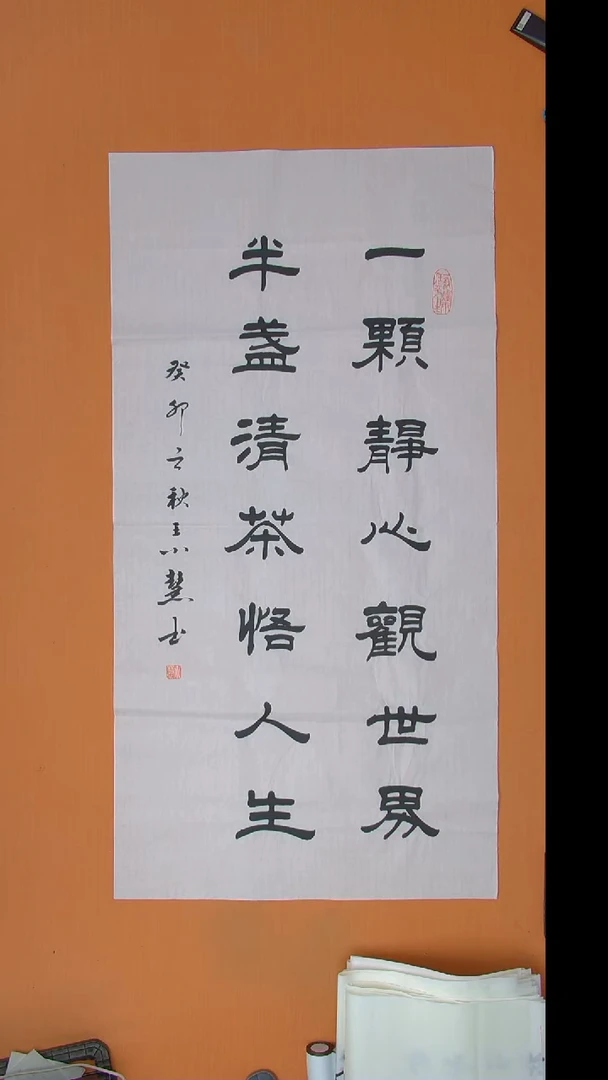 一顆靜心觀世界
半盞清茶悟人生
癸卯立秋王小慧书